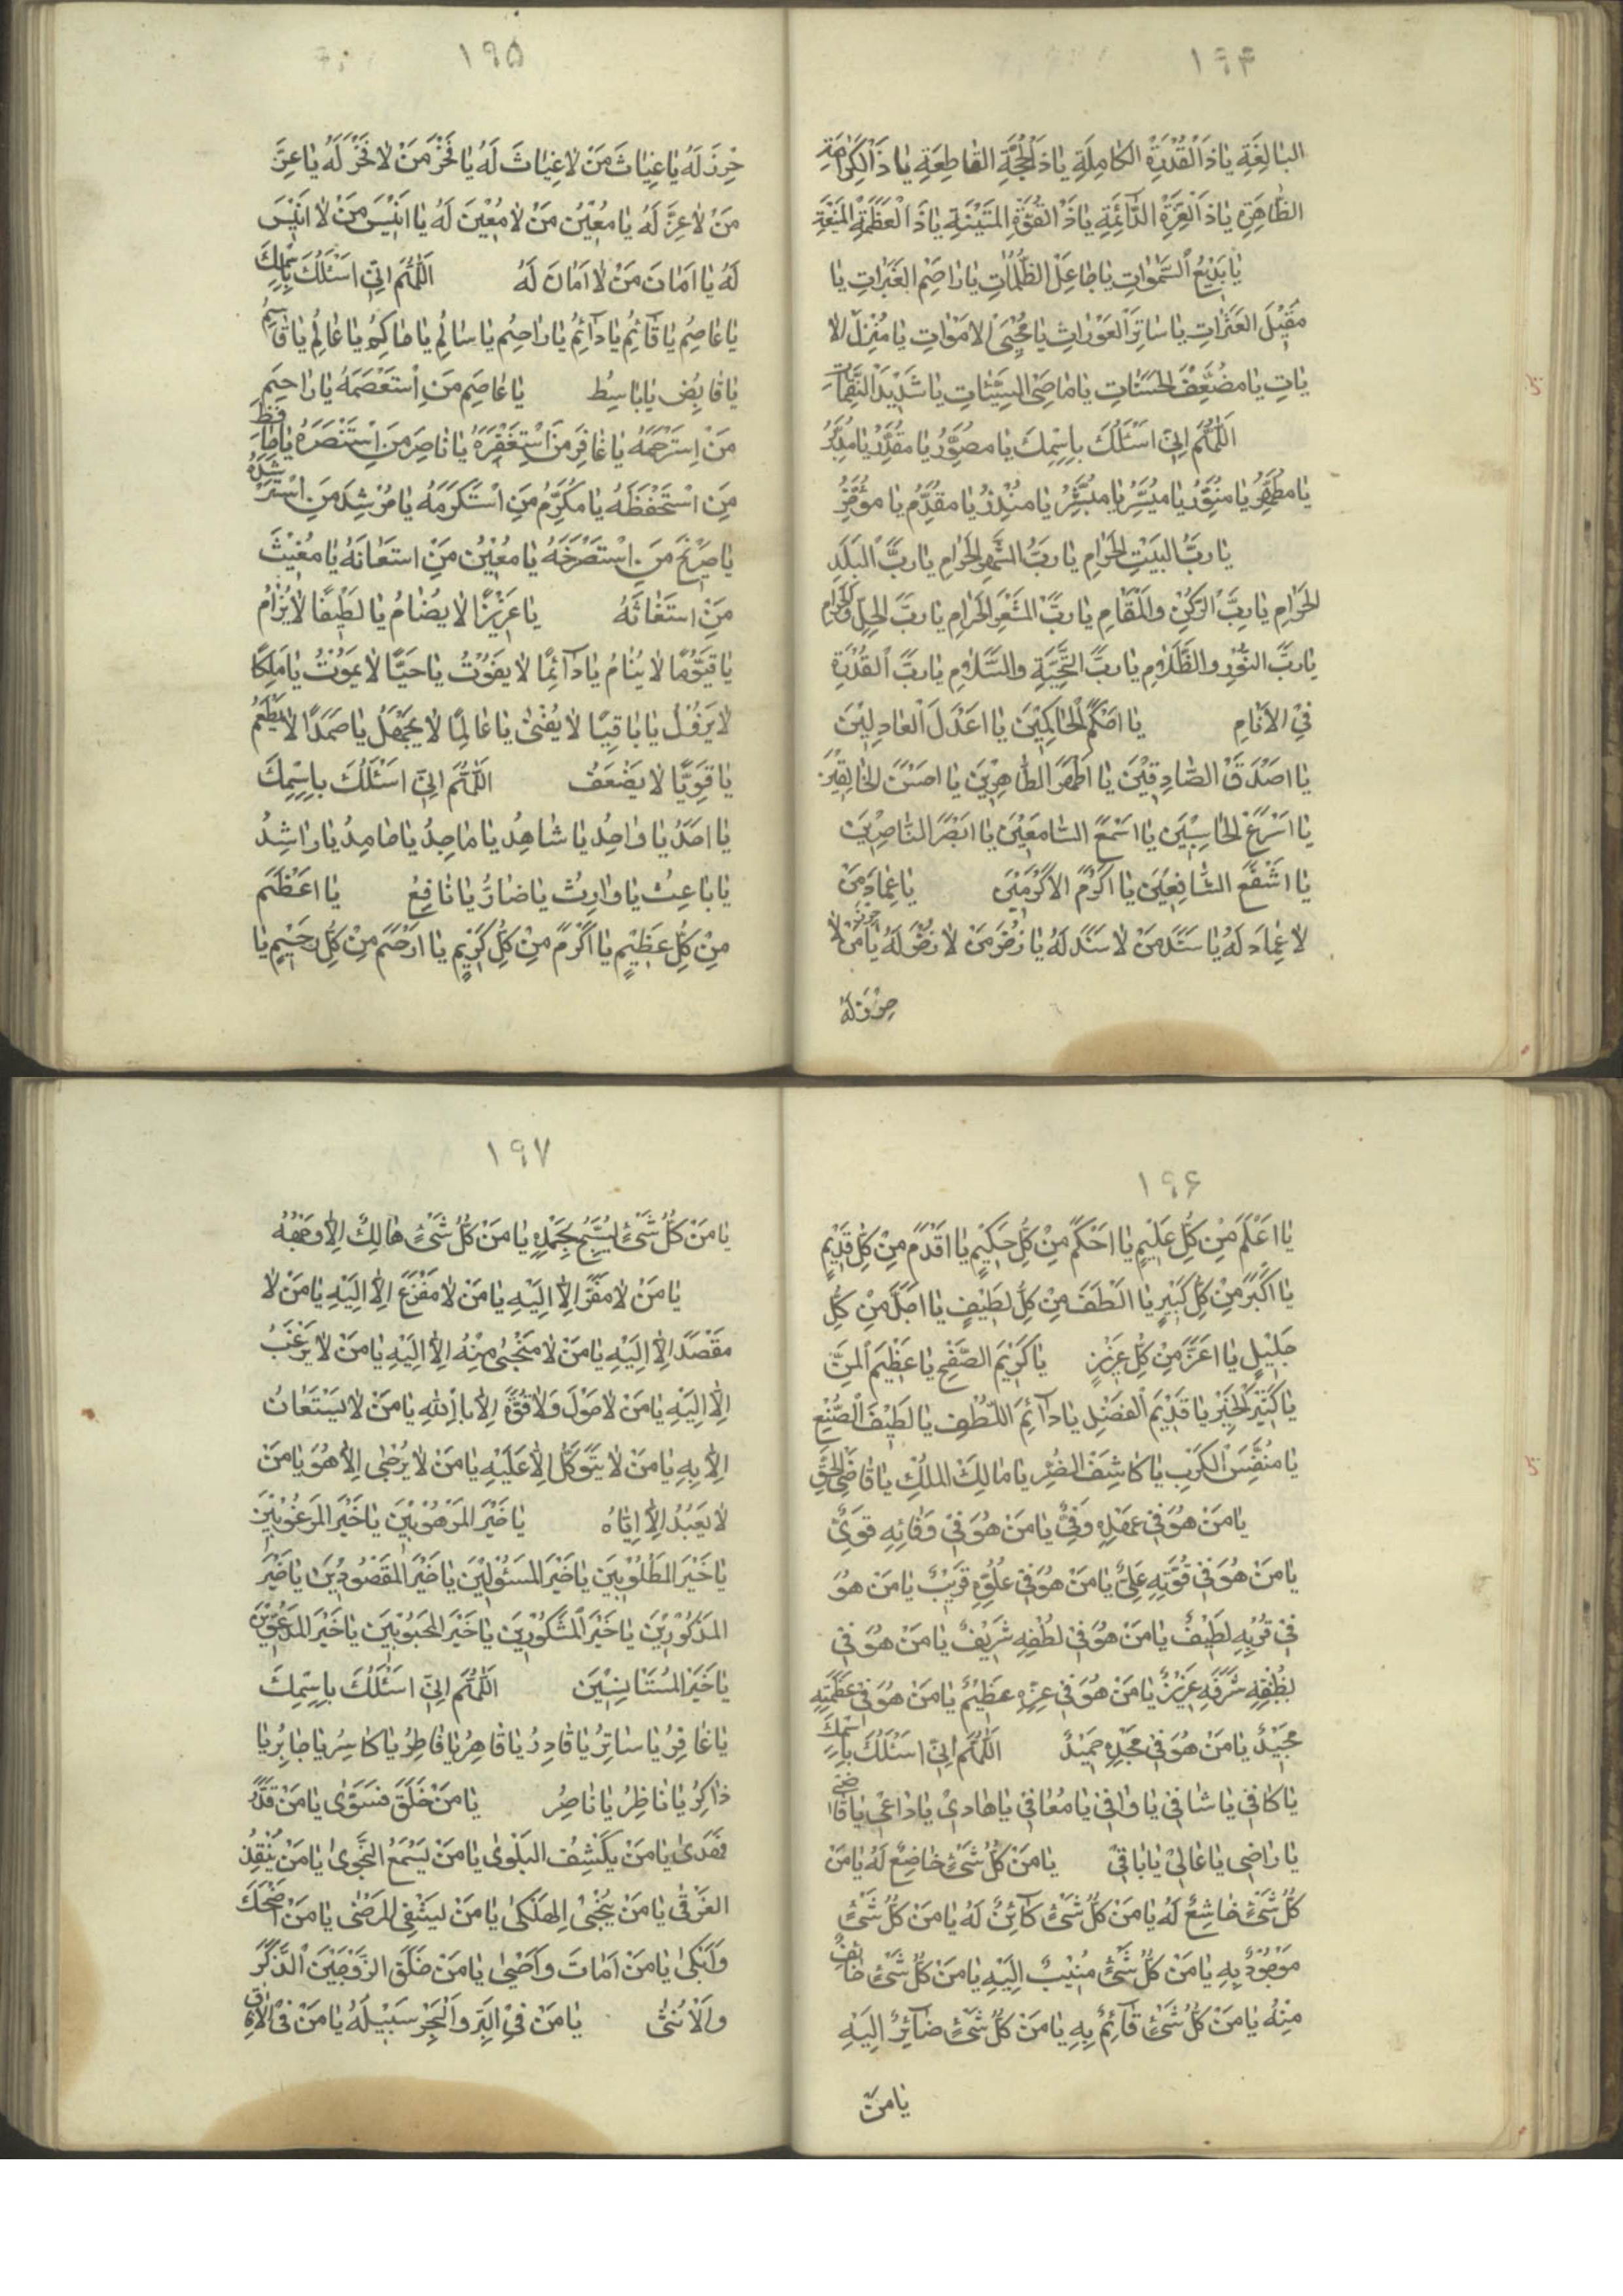 ١٩٤
البٰالِغَةِ يٰاذَ الْقُدْرَةِ الكٰامِلَةِ يٰاذَ الْحُجَّةِ القٰاطِعَةِ يٰا ذَالْكَرٰامَةِ
الظّٰاهِرَةِ يٰاذَ الْعِزَّةِ الدّٰآئِمَةِ يٰاذَ الْقُوَّةِ المَتِيْنَةِ يٰاذَ الْعَظَمَةِ الْمَنِيْعَةِ
يٰا بَدِيْعُ السَّمٰوٰاتِ يٰاجٰاعِلَ الظُّلُمٰاتِ يٰارٰاحِمَ العَبَرٰاتِ يٰا
مُقِيْلَ العَثَرٰاتِ يٰاسٰاتِرَ العَوْرٰاتِ يٰامُحْيِيَ الامْوٰاتِ يٰا مُنْزِلَ الا
يٰاتِ يٰا مُضَعِّفَ الحَسَنٰاتِ يٰامٰاحِيَ السَّيِّئٰاتِ يٰا شَدِيْدَ النَّقِمٰاتِ
اَللّٰهُمَّ اِنِّيْ اَسْئَلُكَ بِاِسْمِكَ يٰا مُصَوِّرُ يٰا مُقَدِّرُ يٰا مُدَبِّرُ
يٰا مُطَهِّرُ يٰا مُنَوِّرُ يٰا مُيَسِّرُ يٰا مُبَشِّرُ يٰا مُنْذِرُ يٰا مُقَدِّمُ يٰا مُؤَخِّرُ
يٰا رَبَّ البَيْتِ الحَرٰامِ يٰا رَبَّ الشَّهْرِ الحَرٰامِ يٰا رَبَّ الْبَلَدِ
الحَرٰامِ يٰا رَبَّ الرُّكْنِ وَالْمَقٰامِ يٰا رَبَّ المَشْعَرِ الحَرٰامِ يٰا رَبَّ الحِلِّ وَالحَرٰامِ
يٰا رَبَّ النُّوْرِ وَالظَّلٰامِ يٰا رَبَّ التَّحِيَّةِ وَالسَّلٰامِ يٰا رَبَّ القُدْرَةِ
فِيْ الاَنٰامِ يٰا احْكَمَ الْحٰاكِمِيْنَ يٰا اعْدَلَ الْعٰادِلِيْنَ
يٰا اصْدَقَ الصّٰادِقِيْنَ يٰا اطْهَرَ الطّٰاهِرِيْنَ يٰا احسَنَ الخٰالِقِيْنَ
يٰا اسْرَعَ الحٰاسِبِيْنَ يٰا اسْمَعَ السّٰامِعِيْنَ يٰا ابْصَرَ النّٰاصِرِيْنَ
يٰا اشْفَعَ الشّٰافِعِيْنَ يٰا اكْرَمَ الاكْرَمِيْنَ يٰا عِمٰادَ مَنْ
لٰا عِمٰادَ لَهُ يٰا سَنَدَ مَنْ لٰا سَنَدَ لَهُ يٰا ذُخْرَ مَنْ لٰا ذُخْرَ لَهُ يٰا حِرْزَ مَنْ لٰا
حِرْزَ لَهُ
١٩٥
حِرْزَ لَهُ يٰا غِيٰاثَ مَنْ لٰا غِيٰاثَ لَهُ يٰا فَخْرَ مَنْ لٰا فَخْرَ لَهُ يٰا عِزَّ
مَنْ لٰا عِزَّ لَهُ يٰا مُعِيْنُ مَنْ لٰا مُعِيْنَ لَهُ يٰا انِيْسَ مَنْ لٰا انِيْسَ
لَهُ يٰا اَمٰانَ مَنْ لٰا اَمٰانَ لَهُ اَللّٰهُمَّ اِنِّيْ اَسْئَلُكَ بِاِسْمِكَ
يٰا عٰاصِمُ يٰا قٰآئِمُ يٰا دٰآئِمُ يٰا رٰاحِمُ يٰا سٰالِمُ يٰا حٰاكِمُ يٰا عٰالِمُ يٰا قٰاسِمُ
يٰا قٰابِضُ يٰا بٰاسِطُ يٰا عٰاصِمَ مَنِ اسْتَعْصَمَهُ يٰا رٰاحِمَ
مَنْ اِسْتَرْحَمَهُ يٰا غٰافِرَ مَنْ اسْتَغْفَرَهُ يٰا نٰاصِرَ مَنِ اسْتَنْصَرَهُ يٰا حٰافِظَ
مَنِ اسْتَحْفَظَهُ يٰا مُكَرِّمُ مَنِ اسْتَكْرَمَهُ يٰا مُرْشِدَ مَنِ اسْتَرْشَدَهُ
يٰا صَرِيْخَ مَنِ اسْتَصْرَخَهُ يٰا مُعِيْنُ مَنِ اسْتَعٰانَهُ يٰا مُغِيْثَ
مَنِ اسْتَغٰاثَهُ يٰا عَزِيْزًا لٰا يُضٰامُ يٰا لَطِيْفًا لٰا يُرٰامُ
يٰا قَيُّوْمًا لٰا يَنٰامُ يٰا دٰآئِمًا لٰا يَفُوْتُ يٰا حَيًّا لٰا يَمُوْتُ يٰا مَلِكًا
لٰا يَزُوْلُ يٰا بٰاقِيًا لٰا يَفْنىٰ يٰا عٰالِمًا لٰا يَجْهَلُ يٰا صَمَدًا لٰا يُطْعَمُ
يٰا قَوِيًّا لٰا يَضْعَفُ اَللّٰهُمَّ اِنِّيْ اَسْئَلُكَ بِاِسْمِكَ
يٰا احَدُ يٰا وٰاحِدُ يٰا شٰاهِدُ يٰا مٰاجِدُ يٰا حٰامِدُ يٰا رٰاشِدُ
يٰا بٰاعِثُ يٰا وٰارِثُ يٰا ضٰارُّ يٰا نٰافِعُ يٰا اعْظَمَ
مِنْ كُلِّ عَظِيْمٍ يٰا اكْرَمَ مِنْ كُلِّ كَرِيْمٍ يٰا ارْحَمَ مِنْ كُلِّ رَحِيْمٍ يٰا
١٩۶
يٰا اعْلَمَ مِنْ كُلِّ عَلِيْمٍ يٰا احْكَمَ مِنْ كُلِّ حَكِيْمٍ يٰا اقْدَمَ مِنْ كُلِّ قَدِيْمٍ
يٰا اكْبَرَ مِنْ كُلِّ كَبِيْرٍ يٰا الْطَفَ مِنْ كُلِّ لَطِيْفٍ يٰا اجَلَّ مِنْ كُلِّ
جَلِيْلٍ يٰا اعَزَّ مِنْ كُلِّ عَزِيْزٍ يٰا كَرِيْمَ الصَّفْحِ يٰا عَظِيْمَ المَنِّ
يٰا كَثِيْرَ الْخَيْرِ يٰا قَدِيْمَ الْفَضْلِ يٰا دٰآئِمَ اللُّطْفِ يٰا لَطِيْفَ الصُّنْعِ
يٰا مُنَفِّسَ الْكَرْبِ يٰا كٰاشِفَ الضُّرِّ يٰا مٰالِكَ المُلْكِ يٰا قٰاضِيَ الْحَقِّ
يٰا مَنْ هُوَ فِيْ عَهْدِهِ وَفِيٌّ يٰا مَنْ هُوَ فِيْ وَفٰائِهِ قَوِيٌّ
يٰا مَنْ هُوَ فِيْ قُوَّتِهِ عَلِيٌّ يٰا مَنْ هُوَ فِيْ عُلُوِّهِ قَرِيْبٌ يٰا مَنْ هُوَ
فِيْ قُرْبِهِ لَطِيْفٌ يٰا مَنْ هُوَ فِيْ لُطْفِهِ شَرِيْفٌ يٰا مَنْ هُوَ فِيْ
شَرَفِهِ عَزِيْزٌ يٰا مَنْ هُوَ فِيْ عِزِّهِ عَظِيْمٌ يٰا مَنْ هُوَ فِيْ عَظَمَتِهِ
مَجِيْدٌ يٰا مَنْ هُوَ فِيْ مَجْدِهِ حَمِيْدٌ اَللّٰهُمَّ اِنِّيْ اَسْئَلُكَ بِاِسْمِكَ
يٰا كٰافِيْ يٰا شٰافِيْ يٰا وٰافِيْ يٰا مُعٰافِيْ يٰا هٰادِيْ يٰا دٰاعِيْ يٰا قٰاضِيْ
يٰا رٰاضِي يٰا عٰالِيْ يٰا بٰاقِيْ يٰا مَنْ كُلُّ شَيْءٍ خٰاضِعٌ لَهُ يٰا مَنْ
كُلُّ شَيْءٍ خٰاشِعٌ لَهُ يٰا مَنْ كُلُّ شَيْءٍ كٰآئِنٌ لَهُ يٰا مَنْ كُلُّ شَيْءٍ
مَوْجُوْدٌ بِهِ يٰا مَنْ كُلُّ شَيْءٍ مُنِيْبٌ اِلَيْهِ يٰا مَنْ كُلُّ شَيْءٍ خٰائِفٌ
مِنْهُ يٰا مَنْ كُلُّ شَيْءٍ قٰآئِمٌ بِهِ يٰا مَنْ كُلُّ شَيْءٍ صٰآئِرٌ اِلَيْهِ
يٰا مَنْ
١٩٧
يٰا مَنْ كُلُّ شَيْءٍ يُسَبِّحُ بِحَمْدِهِ يٰا مَنْ كُلُّ شَيْءٍ هٰالِكٌ اِلّٰا وَجْهُهُ
يٰا مَنْ لٰا مَفَرَّ اِلّٰا اِلَيْهِ يٰا مَنْ لٰا مَفْزَعَ اِلّٰا اِلَيْهِ يٰا مَنْ لٰا
مَقْصَدَ اِلّٰا اِلَيْهِ يٰا مَنْ لٰا مَنْجىٰ مِنْهُ اِلّٰا اِلَيْهِ يٰا مَنْ لٰا يَرْغَبُ
اِلّٰا اِلَيْهِ يٰا مَنْ لٰا حَوْلَ وَلٰا قُوَّةَ اِلّٰا بِاللّٰهِ يٰا مَنْ لٰا يُسْتَعٰانُ
اِلّٰا بِهِ يٰا مَنْ لٰا يَتَوَكَّلُ اِلّٰا عَلَيْهِ يٰا مَنْ لٰا يُرْجٰى اِلّٰا هُوَ يٰا مَنْ
لٰا يُعْبَدُ اِلّٰا اِيّٰاهُ يٰا خَيْرَ المَرْهُوْبِيْنَ يٰا خَيْرَ المَرْغُوْبِيْنَ
يٰا خَيْرَ المَطْلُوْبِيْنَ يٰا خَيْرَ المَسْئُوْلِيْنَ يٰا خَيْرَ المَقْصُوْدِيْنَ يٰا خَيْرَ
المَذْكُوْرِيْنَ يٰا خَيْرَ المَشْكُوْرِيْنَ يٰا خَيْرَ المَحْبُوْبِيْنَ يٰا خَيْرَ المَدْعُوِّيْنَ
يٰا خَيْرَ المُسْتَانِسِيْنَ اَللّٰهُمَّ اِنِّيْ اَسْئَلُكَ بِاِسْمِكَ
يٰا غٰافِرُ يٰا سٰاتِرُ يٰا قٰادِرُ يٰا قٰاهِرُ يٰا فٰاطِرُ يٰا كٰاسِرُ يٰا جٰابِرُ يٰا
ذٰاكِرُ يٰا نٰاظِرُ يٰا نٰاصِرُ يٰا مَنْ خَلَقَ فَسَوّٰى يٰا مَنْ قَدَّرَ
فَهَدىٰ يٰا مَنْ يَكْشِفُ البَلْوىٰ يٰا مَنْ يَسْمَعُ النَّجْوىٰ يٰا مَنْ يُنْقِذُ
الغَرْقٰى يٰا مَنْ يُنْجِيْ الهَلْكىٰ يٰا مَنْ يَشْفِي المَرْضٰى يٰا مَنْ اَضْحَكَ
وَاَبْكىٰ يٰا مَنْ اَمٰاتَ وَاَحْيىٰ يٰا مَنْ خَلَقَ الزَّوْجَيْنِ الذَّكَرَ
وَالْاُنْثٰى يٰا مَنْ فِيْ البَرِّ وَالْبَحْرِ سَبِيْلُهُ يٰا مَنْ فِيْ الْاٰفٰاقِ